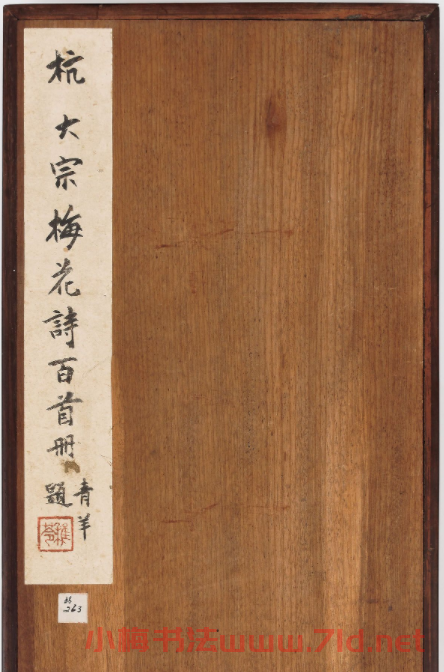 杭大宗梅花詩百首冊
青羊
題
263
小梅书法www.7ld.net